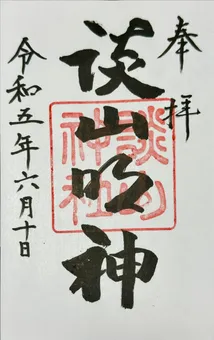 奉拝
談山明神
談山神社
令和五年六月十日